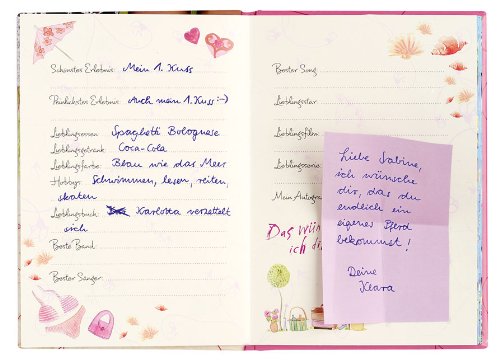 Schönstes Erlebnis: Mein 1. Kuss
Peinlichstes Erlebnis: Auch mein 1. Kuss :-)
Lieblingsessen: Spaghetti Bolognese
Lieblingsgetränk: Coca-Cola
Lieblingsfarbe: Blau wie das Meer
Hobbys: Schwimmen, lesen, reiten,
skaten
Lieblingsbuch: Karlotta verzettelt
sich
Beste Band:
Bester Sänger:
Bester Song:
Lieblingsstar:
Lieblingsfilm:
Lieblingsserie
Mein Autogra
Das wün
ich di
Liebe Sabine,
ich wünsche
dir, das du
endlich ein
eigenes Pferd
bekommst!
Deine
Klara